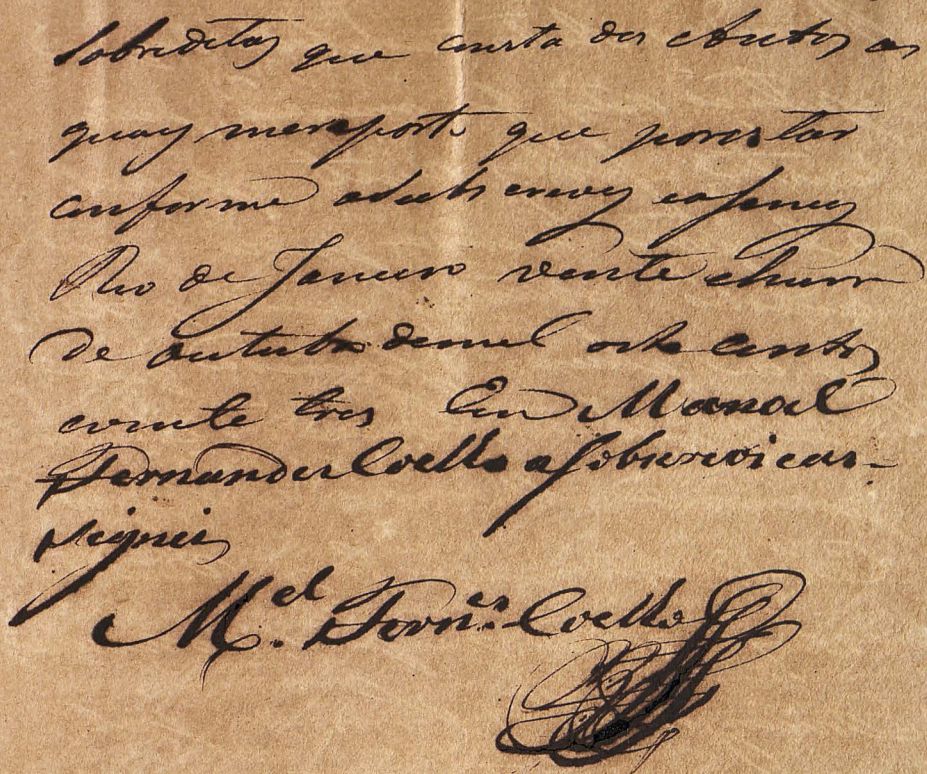 Sobreditos que consta dos Autos as
quaes mereporto que porestar
conforme osubscrevy eaSiney
Rio de Janeiro vente ehum
de outubro demil oito centos
evinte tres Eu Manoel
Fernandes Coelho aSobscrevi eas-
signei
M.el Fern.es Coelho